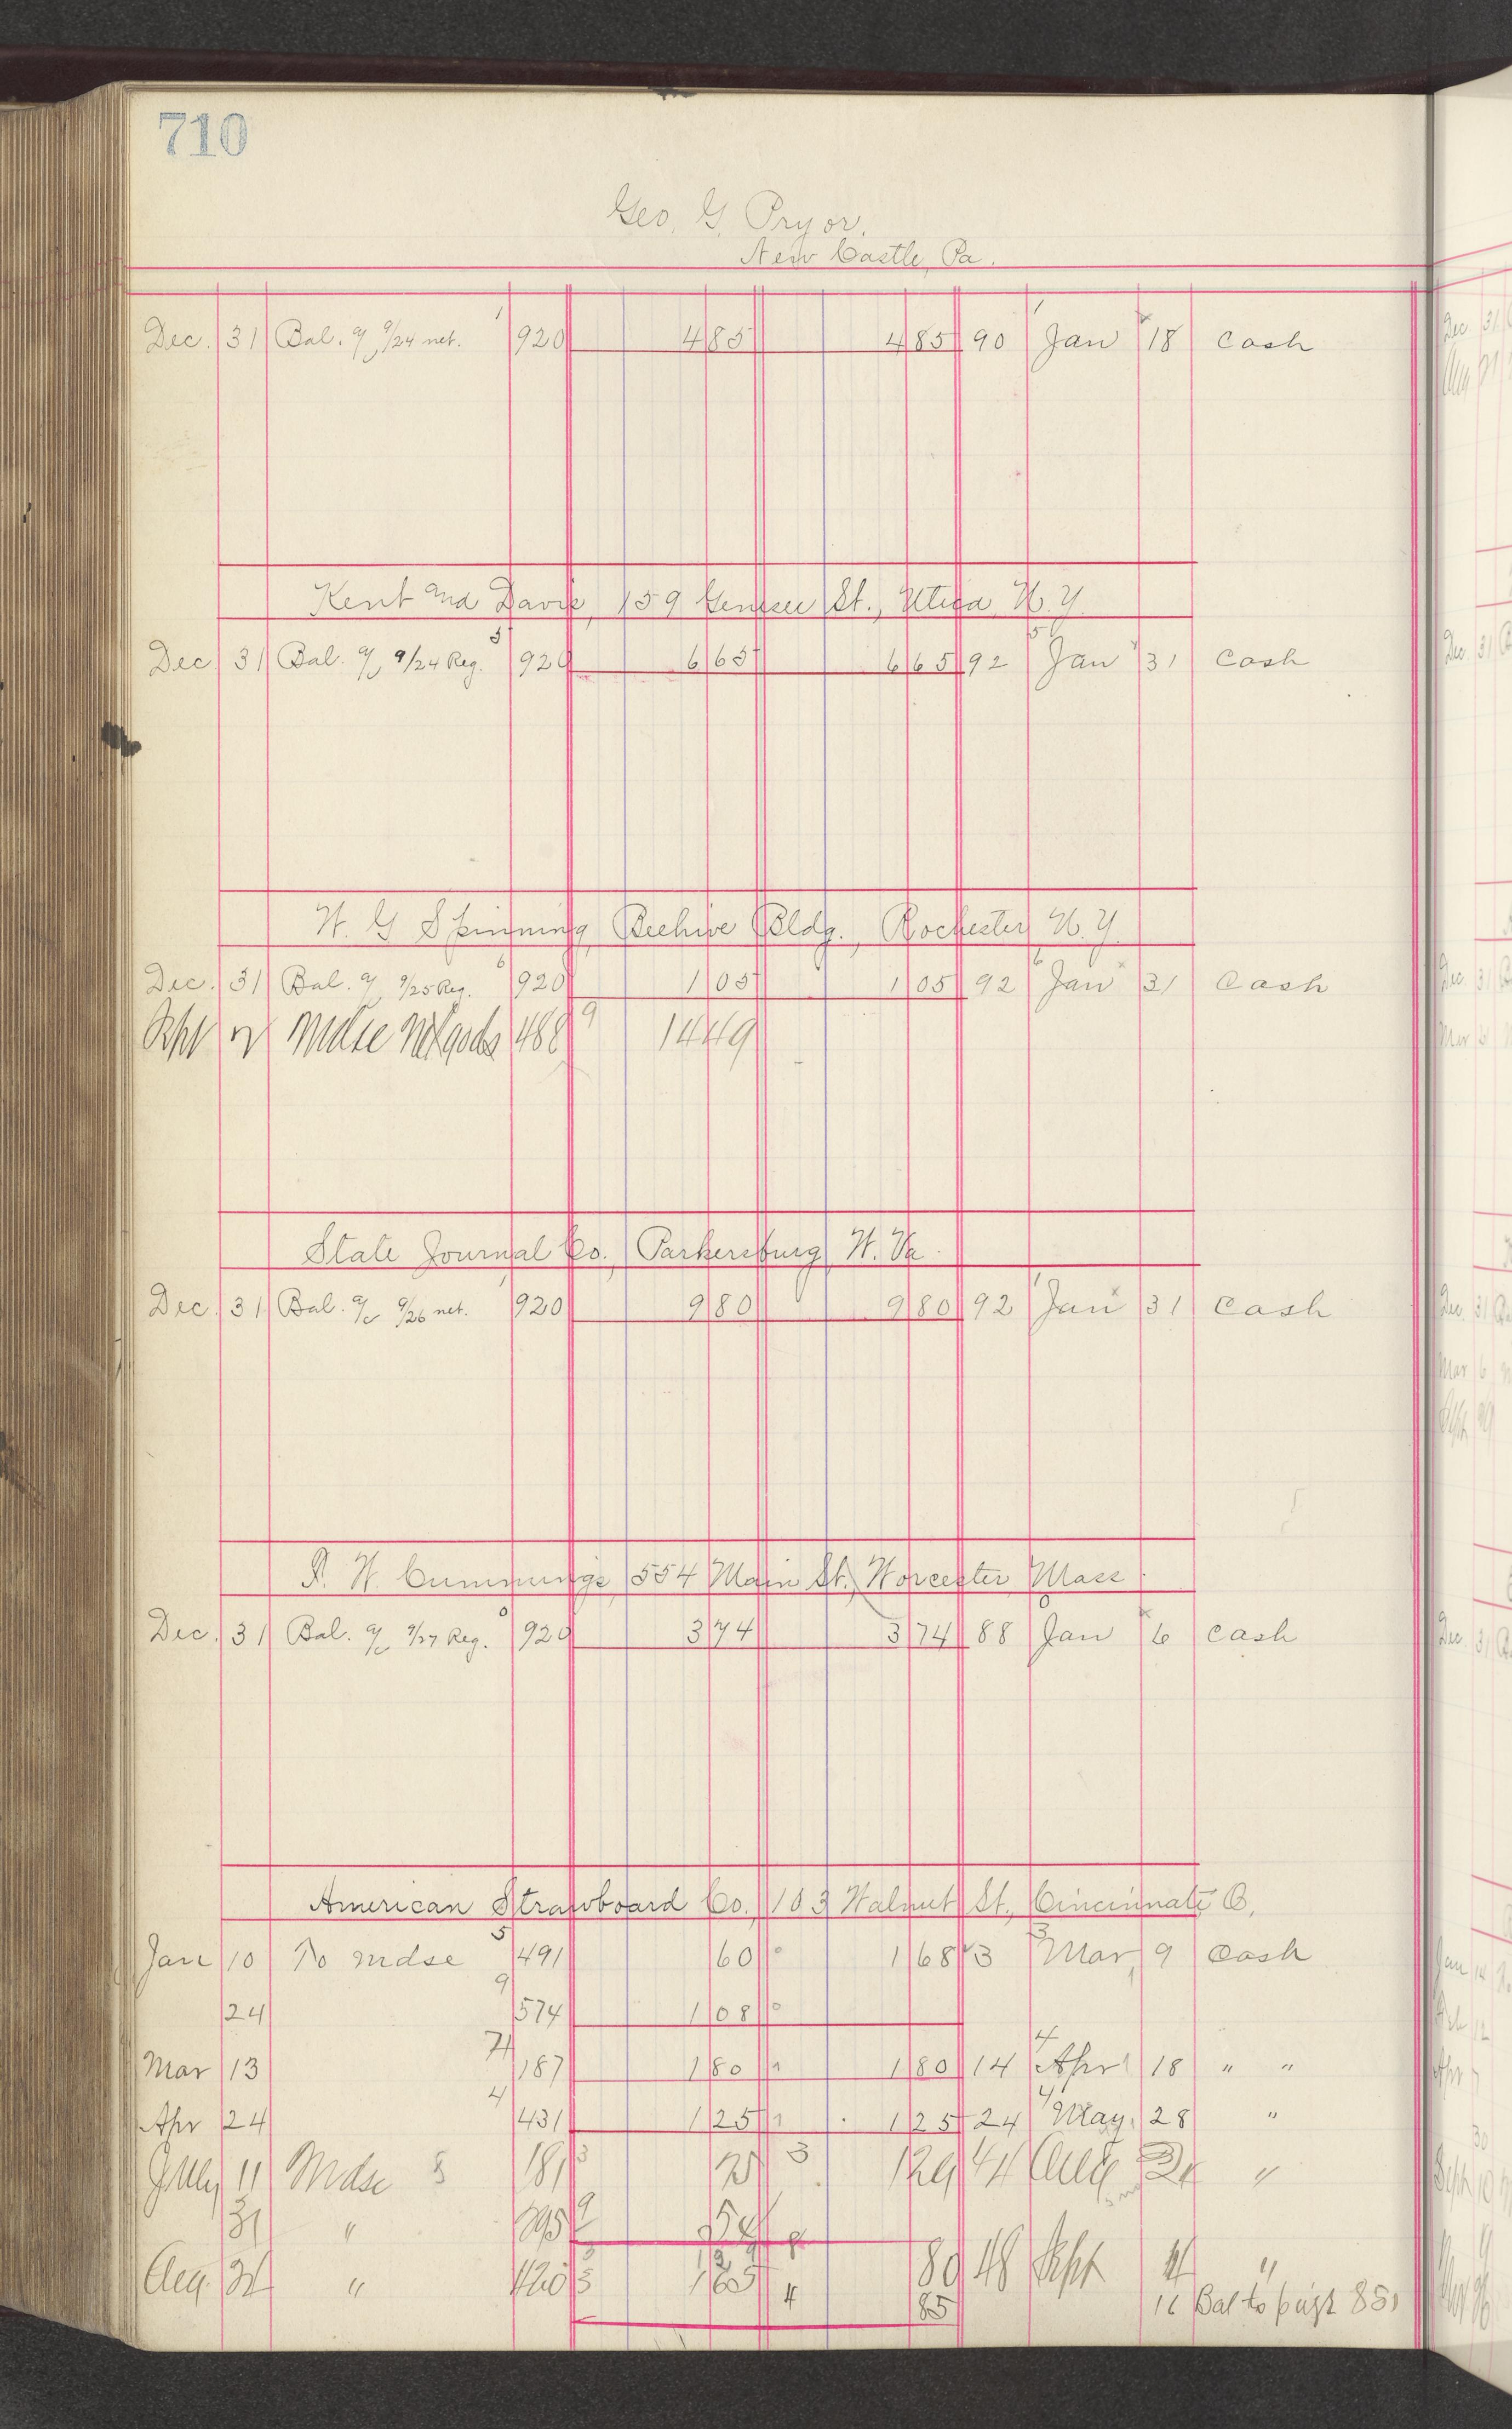 710
Geo. G. Pryor,
New Castle, Pa.
Dec. 31 Bal. 9/24 net. 1 920 485 485 90 1 Jan 18 Cash
Kent and Davis, 159 Genesee St., Utica, N.Y.
Dec 31 Bal. 9/24 Reg. 5 920 665 665 92 5 Jan 31 Cash
W. G Spinning, Beehive Bldg., Rochester, N.Y.
Dec. 31 Bal. 9/25 Reg. 6 920 105 105 92 6 Jan 31 Cash
Mdse 488 9 1449
State Journal Co., Parkersburg, W. Va.
Dec. 31 Bal. 9/26 net. 1 920 980 980 92 1 Jan 31 Cash
W. Cummings, 554 Main St., Worcester, Mass.
Dec. 31 Bal. 9/27 Reg. 920 374 374 88 Jan 6 Cash
American Strawboard Co. 103 Walnut St., Cincinnati, O.
Jan 10 To mdse 5 491 60 168 3 3 Mar, 9 Cash
24 9 574 108
Mar 13 187 180 180 14 4 Apr 18 " "
Apr 24 4 431 125 125 24 4 May. 28 "
July 11 Mdse 181 3 75 3 129 44 Aug "
31 " 54
Aug " 420 165 4 80 48 Sept "
85 16 Bal to page 851